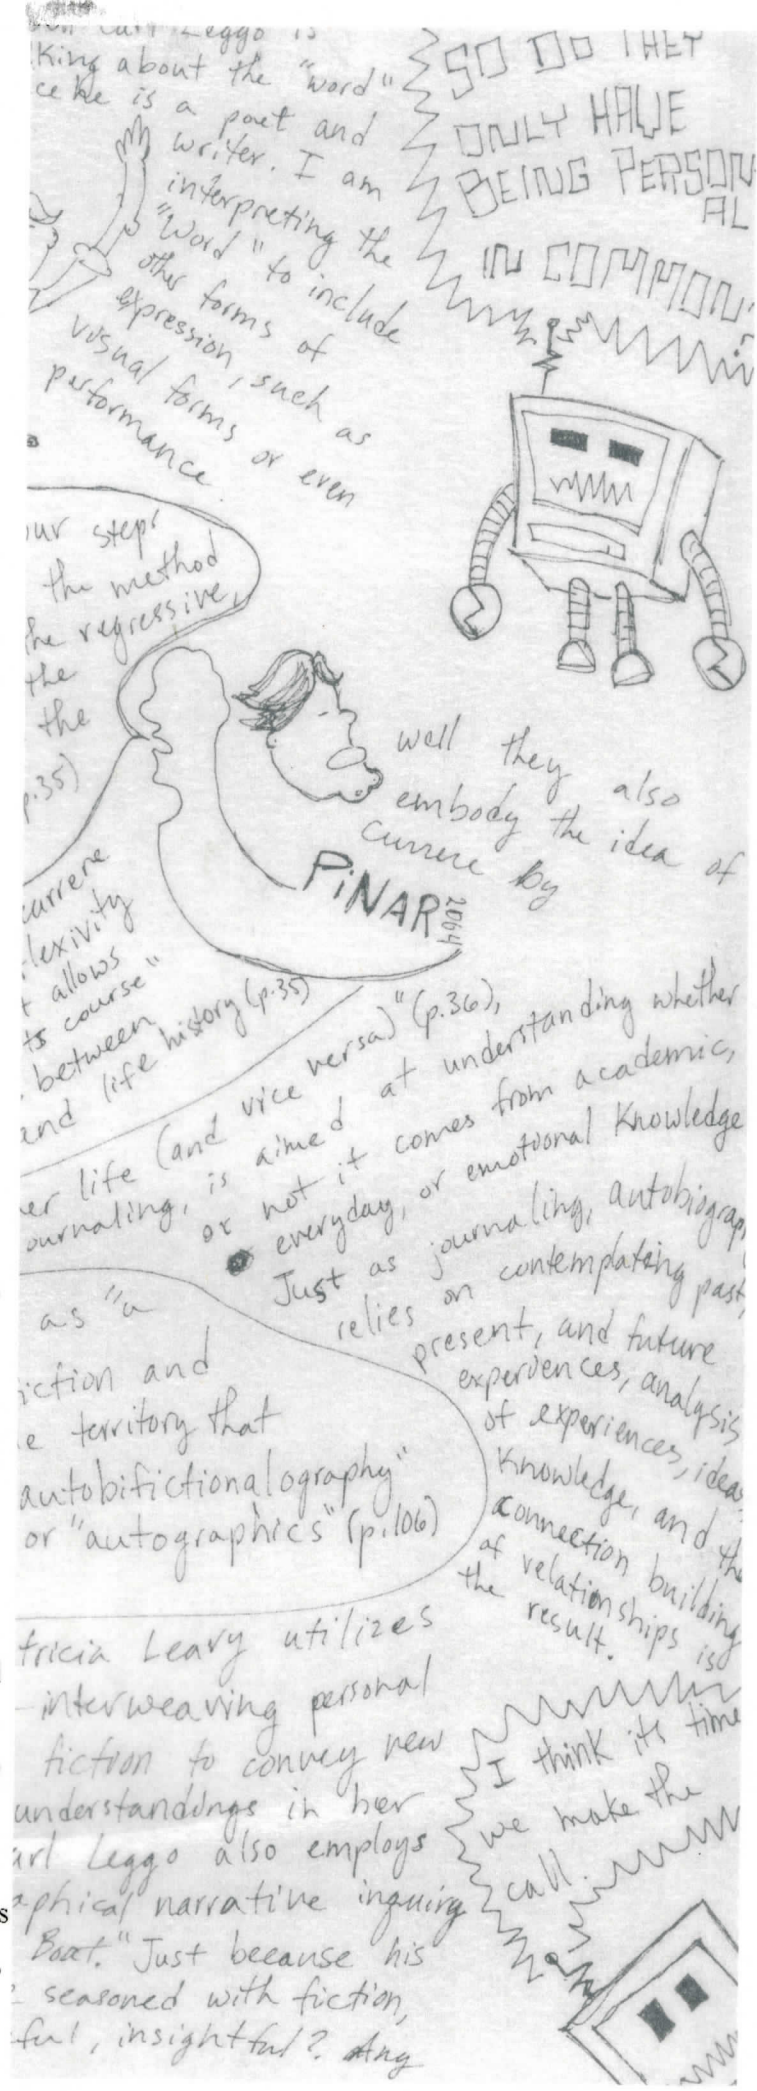 Carl Leggo is
king about the "word"
ce he is a poet and
writer. I am
interpreting the
"Word" to include
other forms of
expression, such as
visual forms or even
performance.
SO DO THEY
ONLY HAVE
BEING PERSON
AL
IN COMMON?
our steps
the method
he regressive,
the
the
p.35)
well they also
embody the idea of
currere by
PiNAR
2064
currere
lexivity
t allows
ts course"
between
and life history (p.35)
er life (and vice versa)" (p.36),
ournaling, is aimed at understanding whether
or not it comes from academic,
everyday, or emotional knowledge
Just as journaling, autobiograp
relies on contemplating past,
present, and future
experiences, analysis
of experiences, ideas
knowledge, and the
connection building
of relationships is
the result.
as "a
iction and
e territory that
autobifictionalography"
or "autographics" (p.106)
tricia Leavy utilizes
-interweaving personal
fiction to convey new
understandings in her
arl Leggo also employs
aphical narrative inquiry
Boat." Just because his
seasoned with fiction,
ful, insightful? Any
I think its time
we make the
call.
s